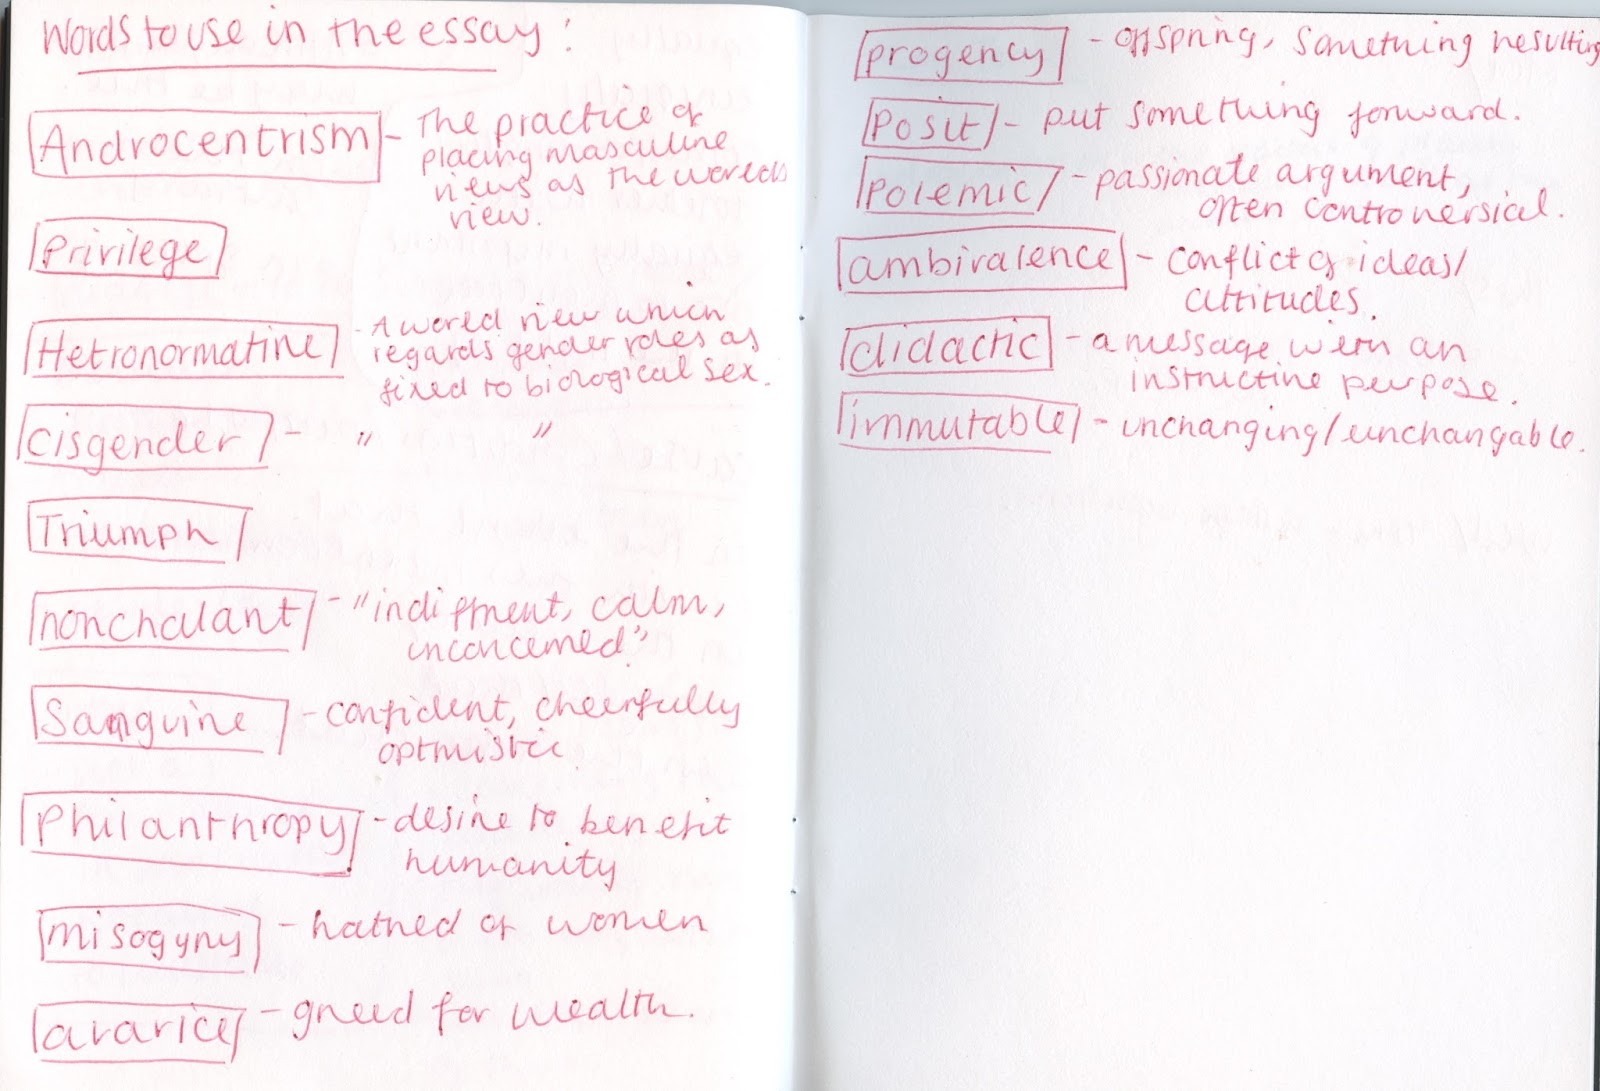 Words to use in the essay:
Androcentrism - The practice of
placing masculine
views as the worlds
view.
Privilege
Hetronormative - A world view which
regards gender roles as
fixed to biological sex.
cisgender - " "
Triumph
nonchalant - "indifferent, calm,
unconcerned"
Sanguine - confident, cheerfully
optmistic
Philanthropy - desire to benefit
humanity
misogyny - hatred of women
avarice - greed for wealth.
progency - offspring, something resulting
Posit - put something forward.
Polemic - passionate argument,
often controversial.
ambivalence - conflict of ideas/
attitudes.
didactic - a message with an
instructive purpose.
immutable - unchanging/unchangable.